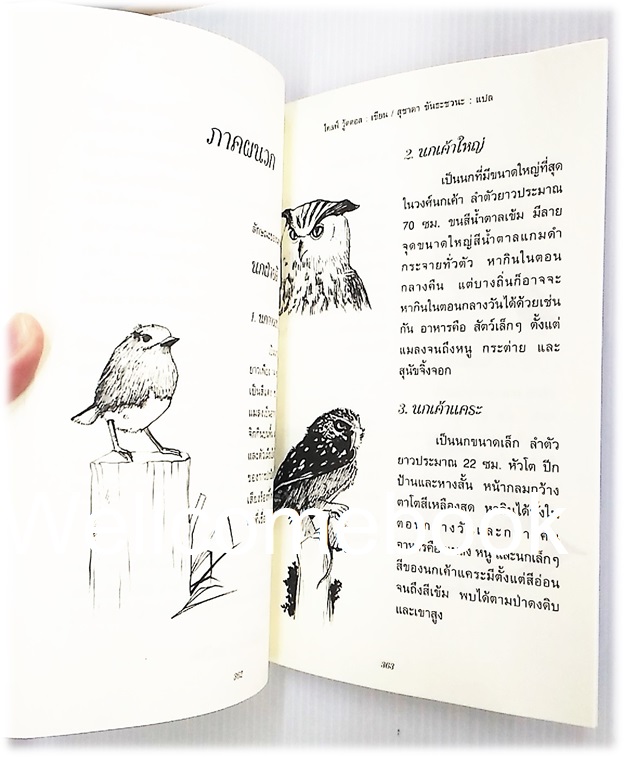 ภาคผนวก
1. นก
362
: เขียน / สุชาดา ขันธะชวนะ : แปล
2. นกเค้าใหญ่
เป็นนกที่มีขนาดใหญ่ที่สุด
ในวงศ์นกเค้า ลำตัวยาวประมาณ
70 ซม. ขนสีน้ำตาลเข้ม มีลาย
จุดขนาดใหญ่สีน้ำตาลแกมดำ
กระจายทั่วตัว หากินในตอน
กลางคืน แต่บางถิ่นก็อาจจะ
หากินในตอนกลางวันได้ด้วยเช่น
กัน อาหารคือ สัตว์เล็กๆ ตั้งแต่
แมลงจนถึงหนู กระต่าย และ
สุนัขจิ้งจอก
3. นกเค้าแคระ
เป็นนกขนาดเล็ก ลำตัว
ยาวประมาณ 22 ซม. หัวโต ปีก
ป้านและหางสั้น หน้ากลมกว้าง
ตาโตสีเหลืองสด
หนู และนกเล็กๆ
สีของนกเค้าแคระมีตั้งแต่สีอ่อน
จนถึงสีเข้ม พบได้ตามป่าดงดิบ
และเขาสูง
363